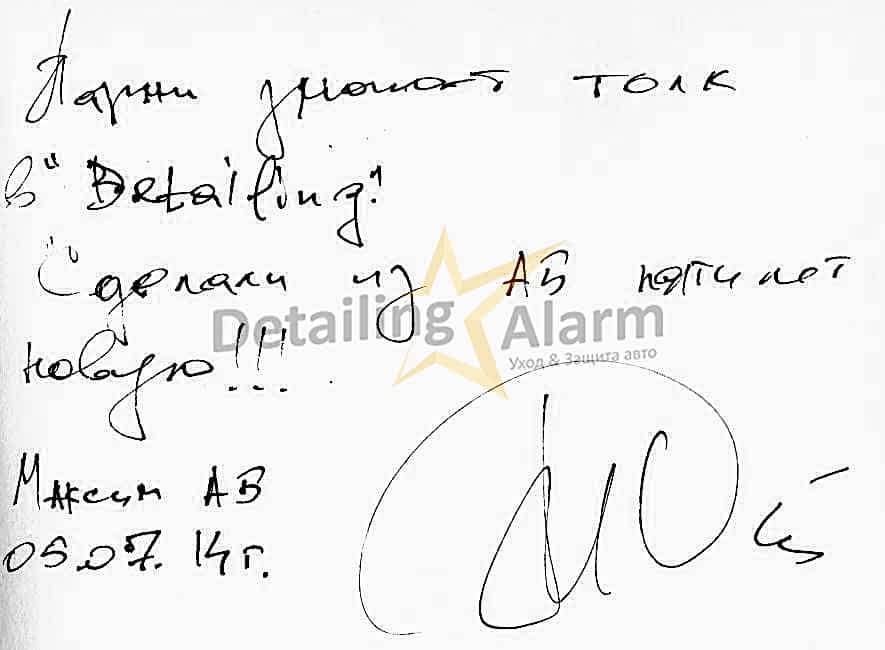 Парни знают толк
в "Detailing"!
Сделали из АВ пяти лет
новую!!!
Detailing Alarm
Уход & Защита авто
Максим АВ
05.07.14г.